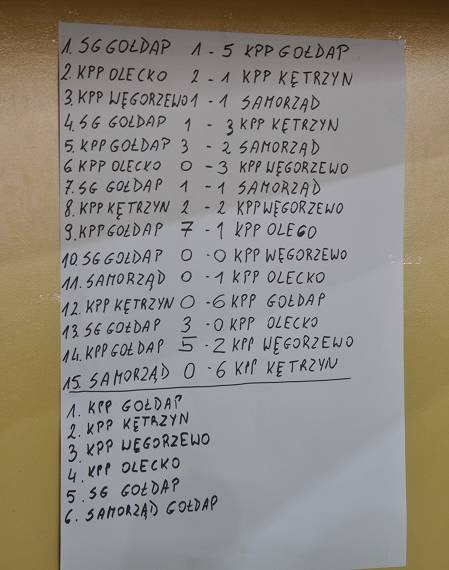 1. SG GOŁDAP 1 - 5 KPP GOŁDAP
2. KPP OLECKO 2 - 1 KPP KĘTRZYN
3. KPP WĘGORZEWO 1 - 1 SAMORZĄD
4. SG GOŁDAP 1 - 3 KPP KĘTRZYN
5. KPP GOŁDAP 3 - 2 SAMORZĄD
6 KPP OLECKO 0 - 3 KPP WĘGORZEWO
7. SG GOŁDAP 1 - 1 SAMORZĄD
8. KPP KĘTRZYN 2 - 2 KPP WĘGORZEWO
9. KPP GOŁDAP 7 - 1 KPP OLEGO
10. SG GOŁDAP 0 - 0 KPP WĘGORZEWO
11. SAMORZĄD 0 - 1 KPP OLECKO
12. KPP KĘTRZYN 0 - 6 KPP GOŁDAP
13. SG GOŁDAP 3 - 0 KPP OLECKO
14. KPP GOŁDAP 5 - 2 KPP WĘGORZEWO
15. SAMORZĄD 0 - 6 KPP KĘTRZYN
1. KPP GOŁDAP
2. KPP KĘTRZYN
3. KPP WĘGORZEWO
4. KPP OLECKO
5. SG GOŁDAP
6. SAMORZĄD GOŁDAP